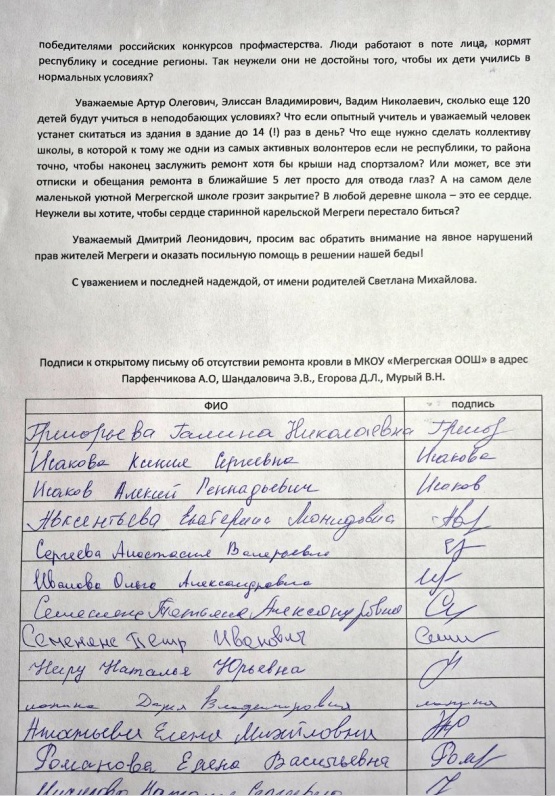 победителями российских конкурсов профмастерства. Люди работают в поте лица, кормят
республику и соседние регионы. Так неужели они не достойны того, чтобы их дети учились в
нормальных условиях?
Уважаемые Артур Олегович, Элиссан Владимирович, Вадим Николаевич, сколько еще 120
детей будут учиться в неподобающих условиях? Что если опытный учитель и уважаемый человек
устанет скитаться из здания в здание до 14 (!) раз в день? Что еще нужно сделать коллективу
школы, в которой к тому же одни из самых активных волонтеров если не республики, то района
точно, чтобы наконец заслужить ремонт хотя бы крыши над спортзалом? Или может, все эти
отписки и обещания ремонта в ближайшие 5 лет просто для отвода глаз? А на самом деле
маленькой уютной Мегрегской школе грозит закрытие? В любой деревне школа – это ее сердце.
Неужели вы хотите, чтобы сердце старинной карельской Мегреги перестало биться?
Уважаемый Дмитрий Леонидович, просим вас обратить внимание на явное нарушений
прав жителей Мегреги и оказать посильную помощь в решении нашей беды!
С уважением и последней надеждой, от имени родителей Светлана Михайлова.
Подписи к открытому письму об отсутствии ремонта кровли в МКОУ «Мегрегская ООШ» в адрес
Парфенчикова А.О, Шандаловича Э.В., Егорова Д.Л., Мурый В.Н.
ФИО подпись
Григорьева Галина Николаевна
Исакова Ксения Сергеевна Исакова
Исаков Алексей Геннадьевич Исаков
Авксентьева Екатерина
Сергеева Анастасия Валерьевна
Иванова Ольга Александровна
Татьяна Александровна
Петр Иванович
Наталья Юрьевна
Дарья Владимировна
Елена Михайловна
Романова Елена Васильевна